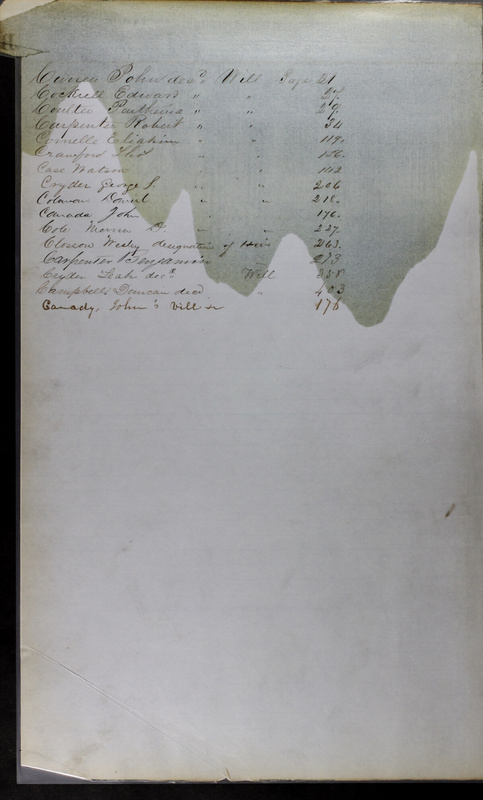 John decd Will Page 21
Cockrell Edward " " 27
Coulter Parthenia " " 29
Carpenter Robert " " 34
Cornelle Eliakim " " 119.
Crawford Thos " " 136.
Case Watson " " 142
Cryder George S. " " 206
Colaway Daniel " " 218.
Canada John " " 176.
Cole Morris D. " " 227.
Closson Wesley designation of Heir 263.
Carpenter Benjamin " 273
Cryder Leah decd Will 388
Campbell Duncan decd " 403
Canady, John's Will 176